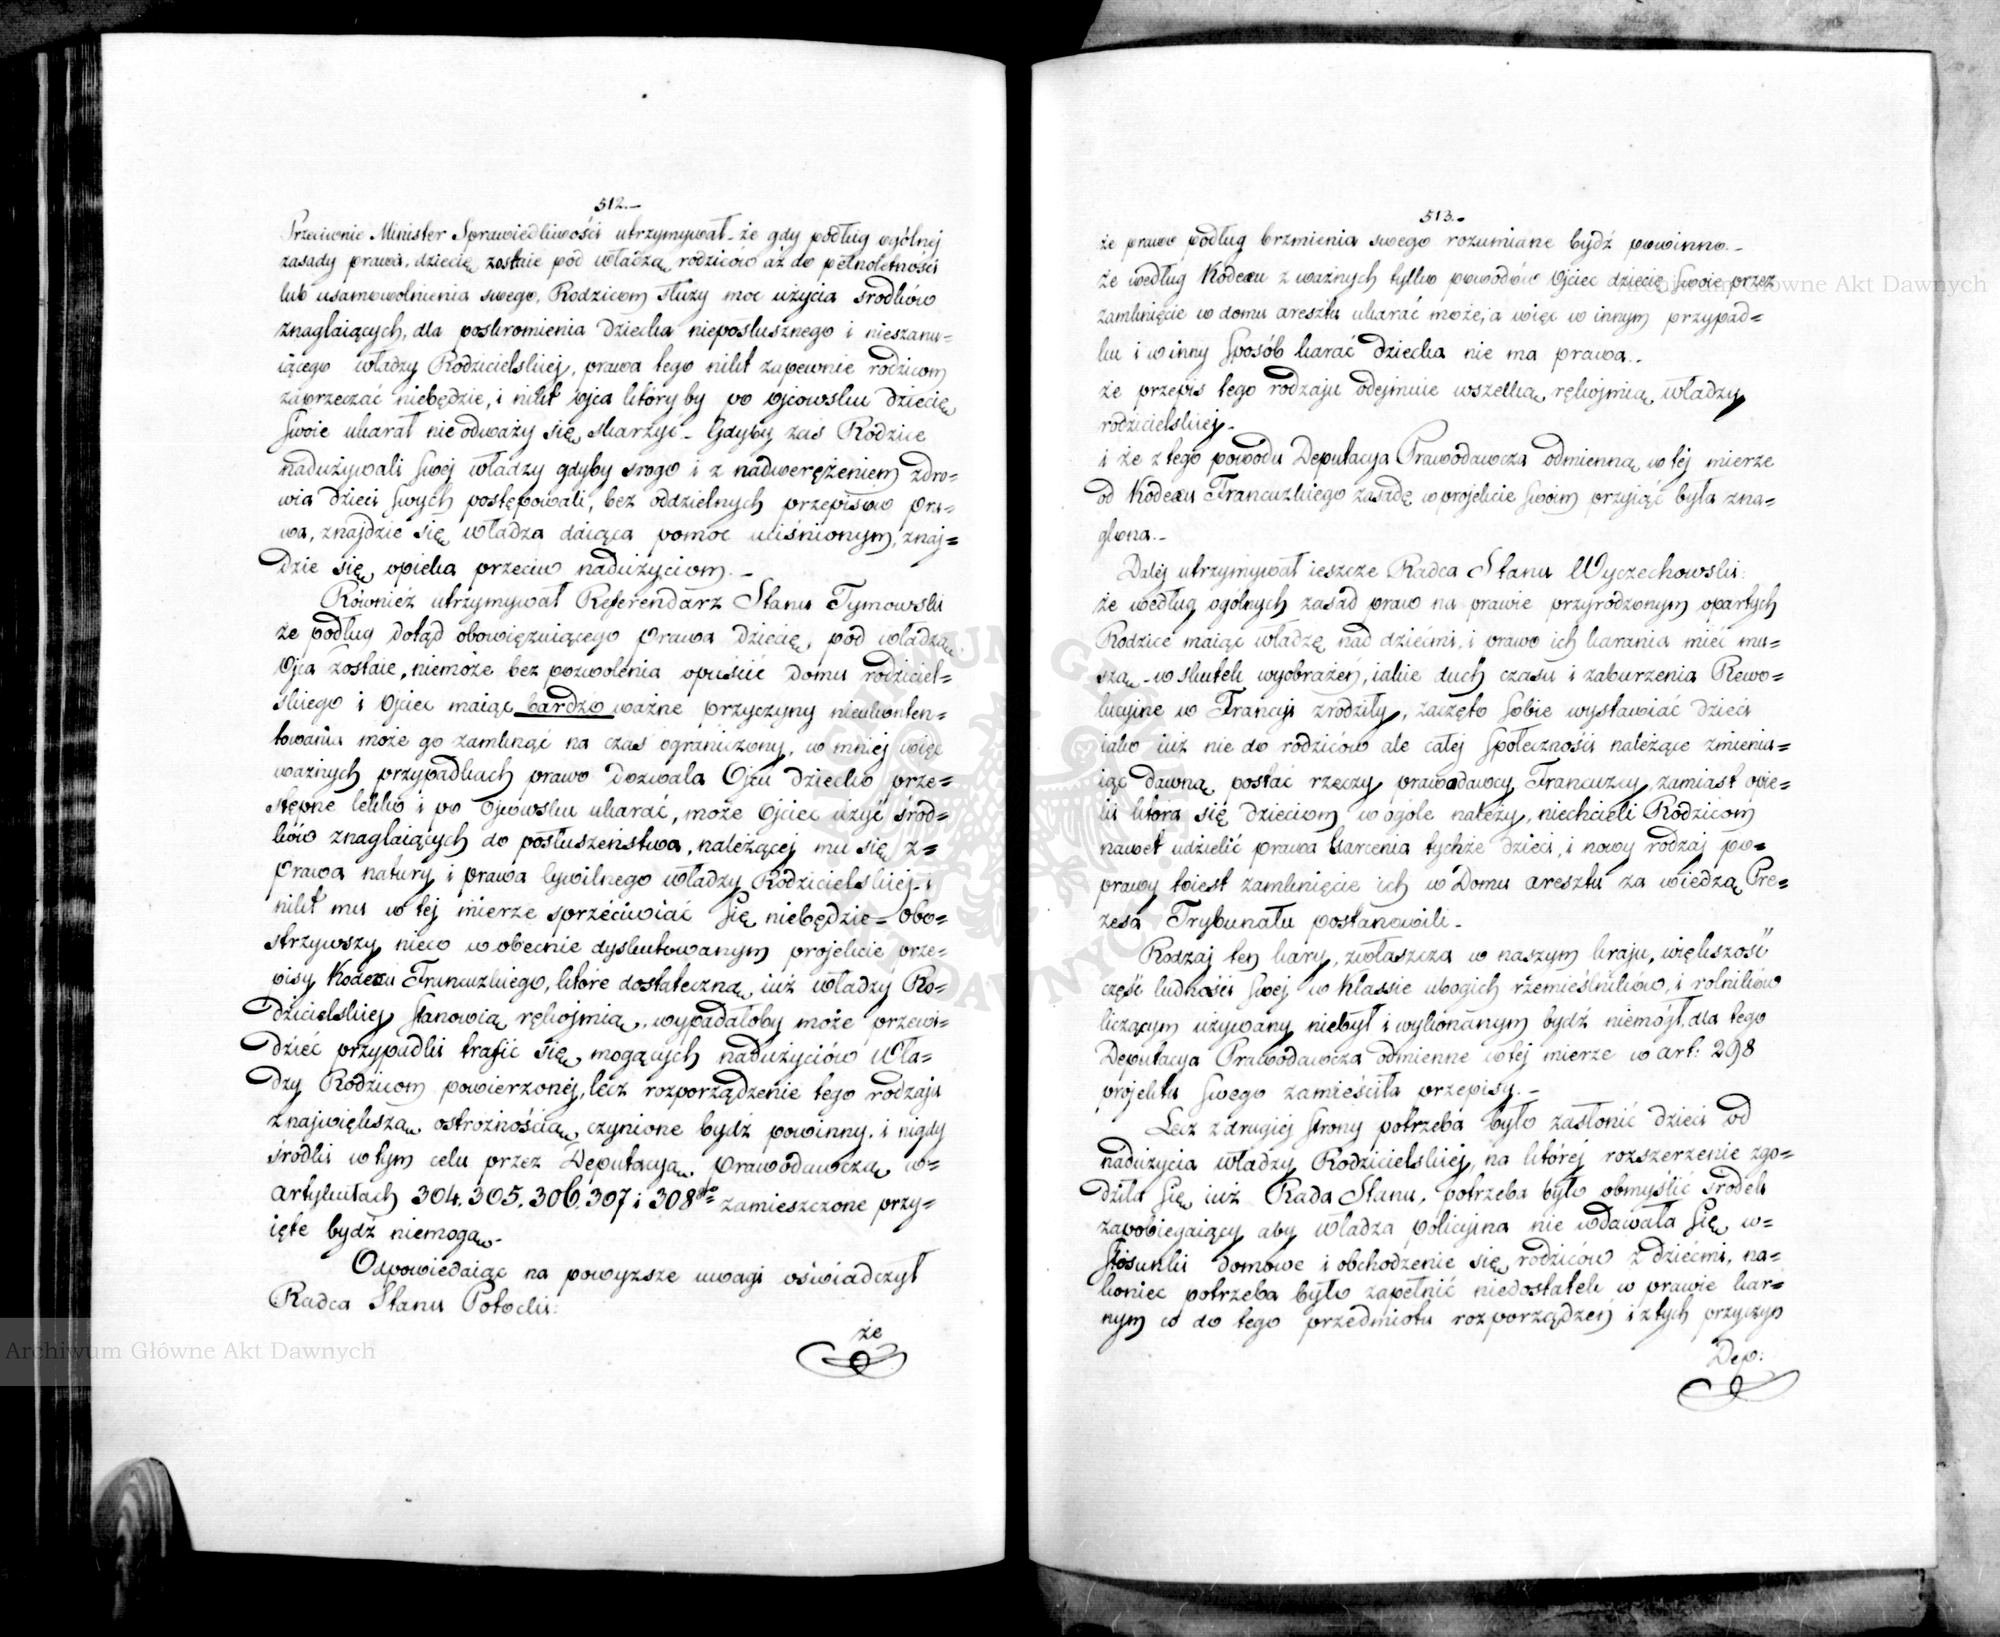 512.-
Przeciwnie Minister Sprawiedliwości utrzymywał. że gdy podług ogólnej
zasady prawa, dziecię zostaie pod władzą rodziców aż do pełnoletności
lub usamowolnienia swego, Rodzicom służy moc użycia środków
znaglaiących, dla poskromienia dziecka nieposłusznego i nieszanu=
iącego władzy Rodzicielskiej, prawa tego nikt zapewnie rodzicom
zaprzeczać niebędzie, i nikt ojca który by po ojcowsku dziecię
swoie ukarał nie odważy się skarżyć. Gdyby zaś Rodzice
nadużywali swej władzy gdyby srogo i z nadwerężeniem zdro=
wia dzieci swych postępowali, bez oddzielnych przepisów pra=
wa, znajdzie się władza daiąca pomoc uciśnionym, znaj=
dzie się opieka przeciw nadużyciom.-
Również utrzymywał Referendarz Stanu Tymowski
że podług dotąd obowięzuiącego prawa dziecię, pod władzą
Ojca zostaie, niemoże bez pozwolenia opuścić domu rodziciel=
skiego i Ojciec maiąc bardzo ważne przyczyny nieukonten=
towania może go zamknąć na czas ograniczony, w mniej więc
ważnych przypadkach prawo dozwala Ojcu dziecko prze=
stępne lekko i po ojcowsku ukarać, może Ojciec użyć środ=
ków znaglaiących do posłuszeństwa, należącej mu się z=
prawa natury i prawa Cywilnego władzy Rodzicielskiej i
nikt mu w tej mierze sprzeciwiać się niebędzie= obo=
strzywszy nieco w obecnie dyskutowanym projekcie prze=
pisy Kodexu Francuzkiego, które dostateczną iuż władzy Ro=
dzicielskiej stanowią rękojmią, wypadałoby może przewi=
dzieć przypadki trafić się mogących nadużyciów wła=
dzy Rodzicom powierzonej, lecz rozporządzenie tego rodzaju
z największą ostrożnością czynione bydź powinny. i nigdy
środki w tym celu przez Deputacyą Prawodawczą w=
artykułach 304. 305. 306. 307 i 308mo zamieszczone przy=
ięte bydź niemogą.
Odpowiedaiąc na powyższe uwagi oświadczył
Radca Stanu Potocki:
że
513.-
że prawo podług brzmienia swego rozumiane bydź powinno.-
że według Kodexu z ważnych tylko powodów Ojciec dziecię swoie przez
zamknięcie w domu aresztu ukarać może, a więc w innym przypad=
ku i w inny sposób karać dziecka nie ma prawa.-
że przepis tego rodzaju odejmuie wszelką rękojmią władzy
rodzicielskiej.-
i że z tego powodu Deputacya Prawodawcza odmienną w tej mierze
od Kodexu Francuzkiego zasadę w projekcie swoim przyiąć była zna=
glona.-
Dalej utrzymywał ieszcze Radca Stanu Wyczechowski:
że według ogólnych zasad praw na prawie przyrodzonym opartych
Rodzice maiąc władzę nad dziećmi, i prawo ich karania mieć mu=
szą.- w skutek wyobrażeń, iakie duch czasu i zaburzenia Rewo=
lucyjne w Francyi zrodziły, zaczęto sobie wystawiać dzieci
iako iuż nie do rodziców ale całej społeczności należące zmienia=
iąc dawną postać rzeczy prawodawcy Francuzcy zamiast opie=
ki która się dzieciom w ogóle należy, niechcieli Rodzicom
nawet udzielić prawa karcenia tychże dzieci, i nowy rodzaj po=
prawy toiest zamknięcie ich w Domu aresztu za wiedzą Pre=
zesa Trybunału postanowili.-
Rodzaj ten kary, zwłaszcza w naszym kraju, większość
część ludności swej w Klassie ubogich rzemieślników, i rolników
liczącym używany niebył i wykonanym bydź niemógł, dla tego
Deputacya Prawodawcza odmienne w tej mierze w art: 298
projektu swego zamieściła przepisy.-
Lecz z drugiej strony potrzeba było zasłonić dzieci od
nadużycia władzy Rodzicielskiej, na której rozszerzenie zgo=
dziła się iuż Rada Stanu, potrzeba było obmyślić środek
zapobiegaiący aby władza policyjna nie wdawała się w=
stosunki domowe i obchodzenie się rodziców z dziećmi, na=
koniec potrzeba było zapełnić niedostatek w prawie kar=
nym co do tego przedmiotu rozporządzeń i z tych przyczyn
Dep:
Archiwum Główne Akt Dawnych
Archiwum Główne Akt Dawnych
ARCHIWUM GŁÓWNE AKT DAWNYCH